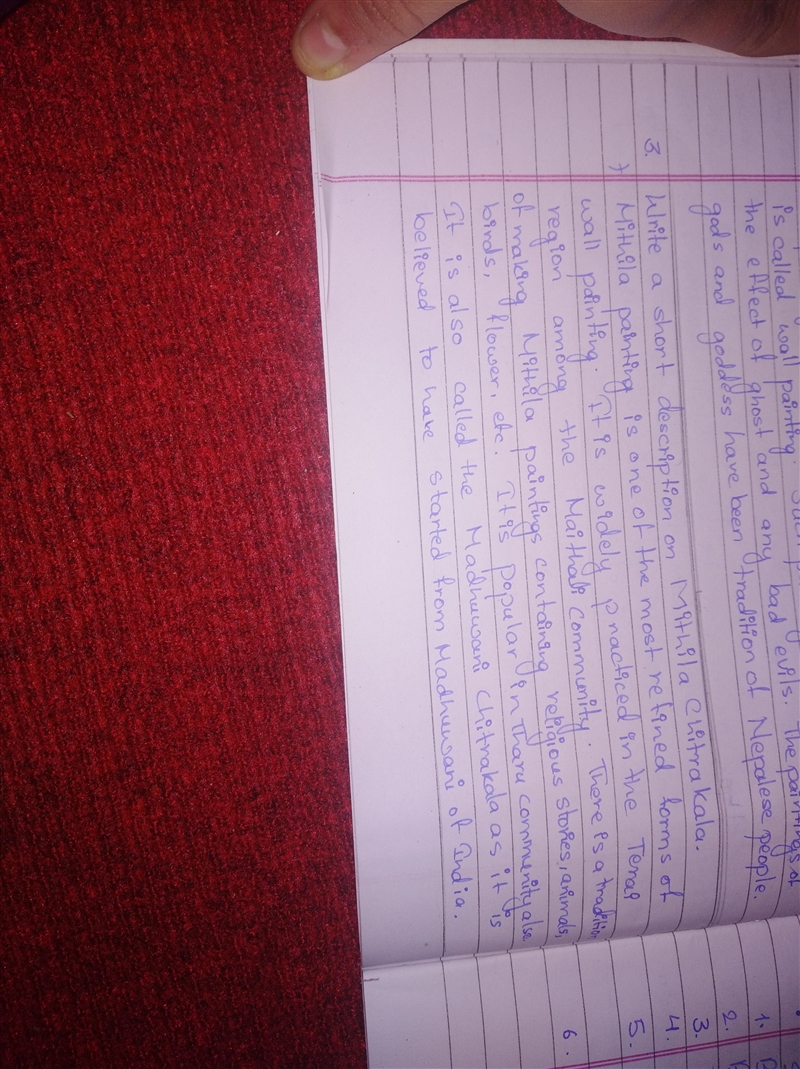 is called wall painting.
the effect of ghost and any bad evils. The paintings of
gods and goddess have been tradition of Nepalese people.
3. Write a short description on Mithila Chitrakala.
→ Mithila painting is one of the most refined forms of
wall painting. It is widely practiced in the Terai
region among the Maithali community. There is a tradition
of making Mithila paintings containing religious stories, animals,
birds, flower, etc. It is popular in Tharu community also
It is also called the Madhuwani Chitrakala as it is
believed to have started from Madhuwani of India.
1.
2.
3.
4.
5.
6.